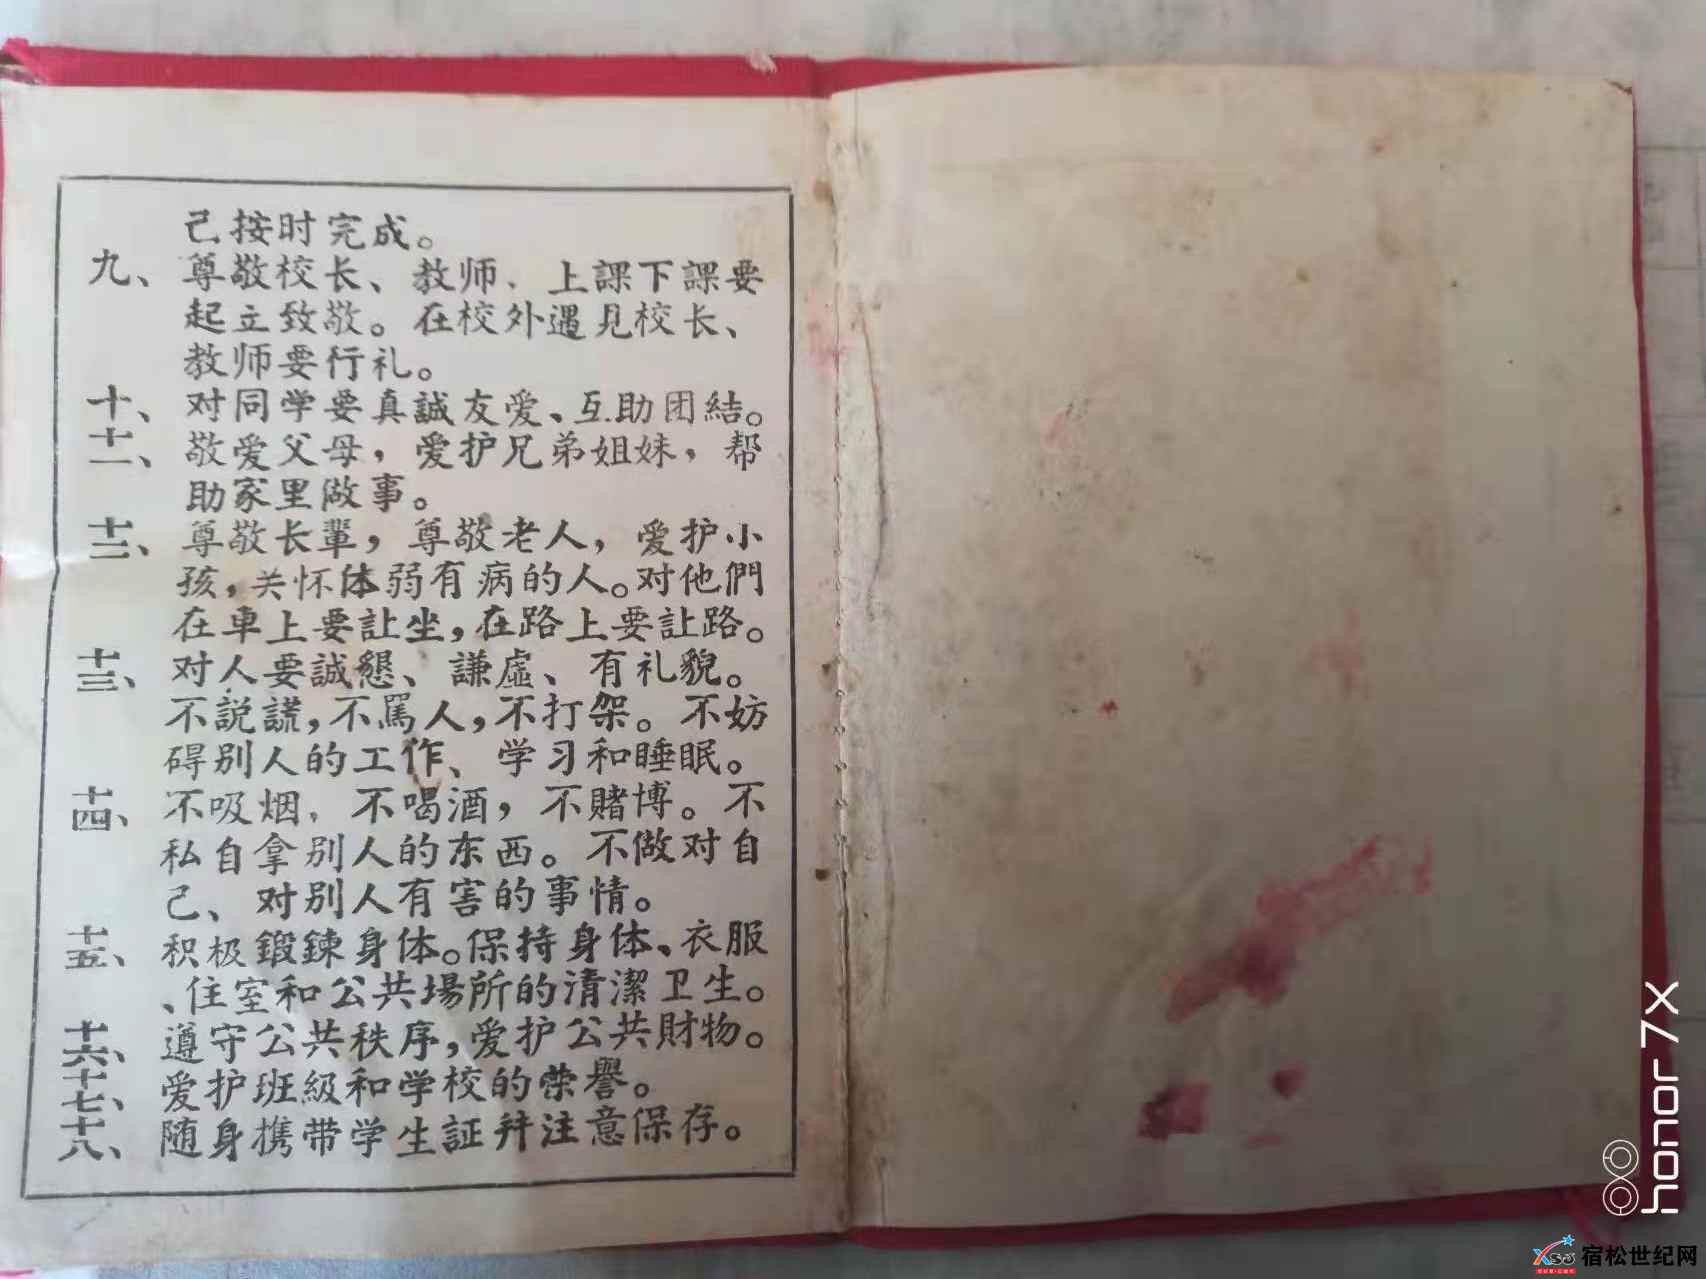 己按时完成。
九、尊敬校长、教师，上課下課要
起立致敬。在校外遇見校长、
教师要行礼。
十、对同学要真誠友爱、互助团結。
十一、敬爱父母，爱护兄弟姐妹，帮
助家里做事。
十二、尊敬长輩，尊敬老人，爱护小
孩，关怀体弱有病的人。对他們
在車上要訨坐，在路上要訨路。
十三、对人要誠懇、謙虛、有礼貌。
不説謊，不罵人，不打架。不妨
碍别人的工作、学习和睡眠。
十四、不吸烟，不喝酒，不賭博。不
私自拿别人的东西。不做对自
己、对别人有害的事情。
十五、积极鍛鍊身体。保持身体、衣服
、住室和公共場所的清潔卫生。
十六、遵守公共秩序，爱护公共財物。
十七、爱护班級和学校的荣譽。
十八、随身携带学生証幷注意保存。
honor 7X
XSSJ 宿松世纪网